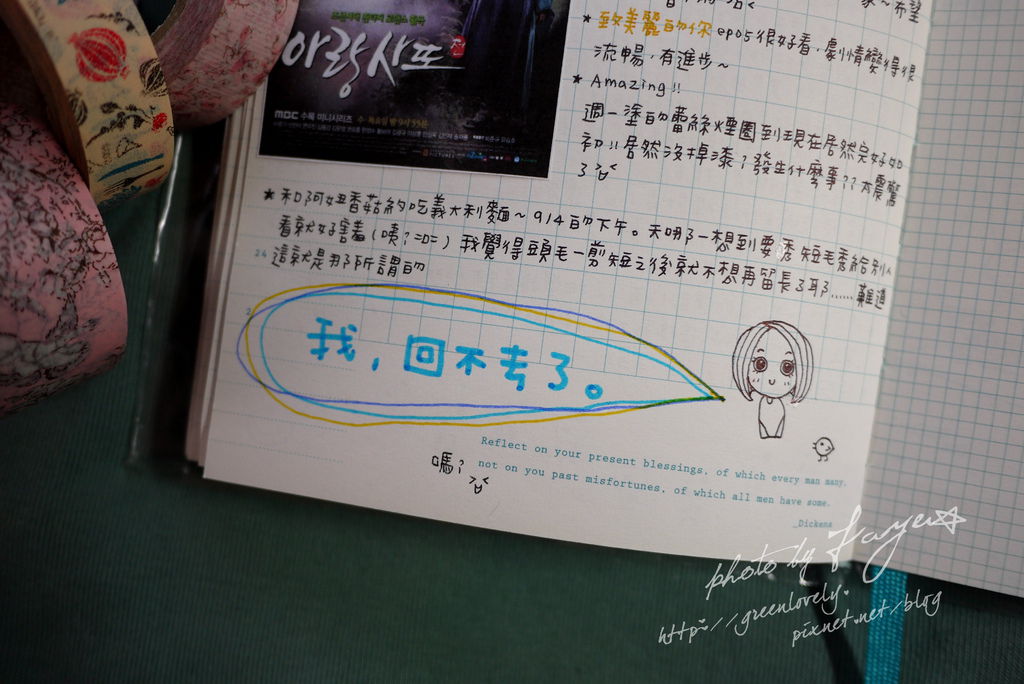 아랑사또
MBC 수목 미니시리즈
* 致美麗的你 ep05很好看,劇情變得很
流暢,有進步~
* Amazing!!
週一塗的蕾絲煙圈到現在居然完好如
初!!居然沒掉漆?發生什麼事??太震驚
了
* 和阿妞香菇約吃義大利麵~914的下午。天哪~一想到要秀短毛秀給別人
看就好害羞(咦?=口=)我覺得頭毛一剪短之後就不想再留長了耶……難道
24 這就是那所謂的
我,回不去了。
嗎?
Reflect on your present blessings, of which every man many,
not on you past misfortunes, of which all men have some.
_Dickens
photo by Faye
http://greenlovely.
pixnet.net/blog